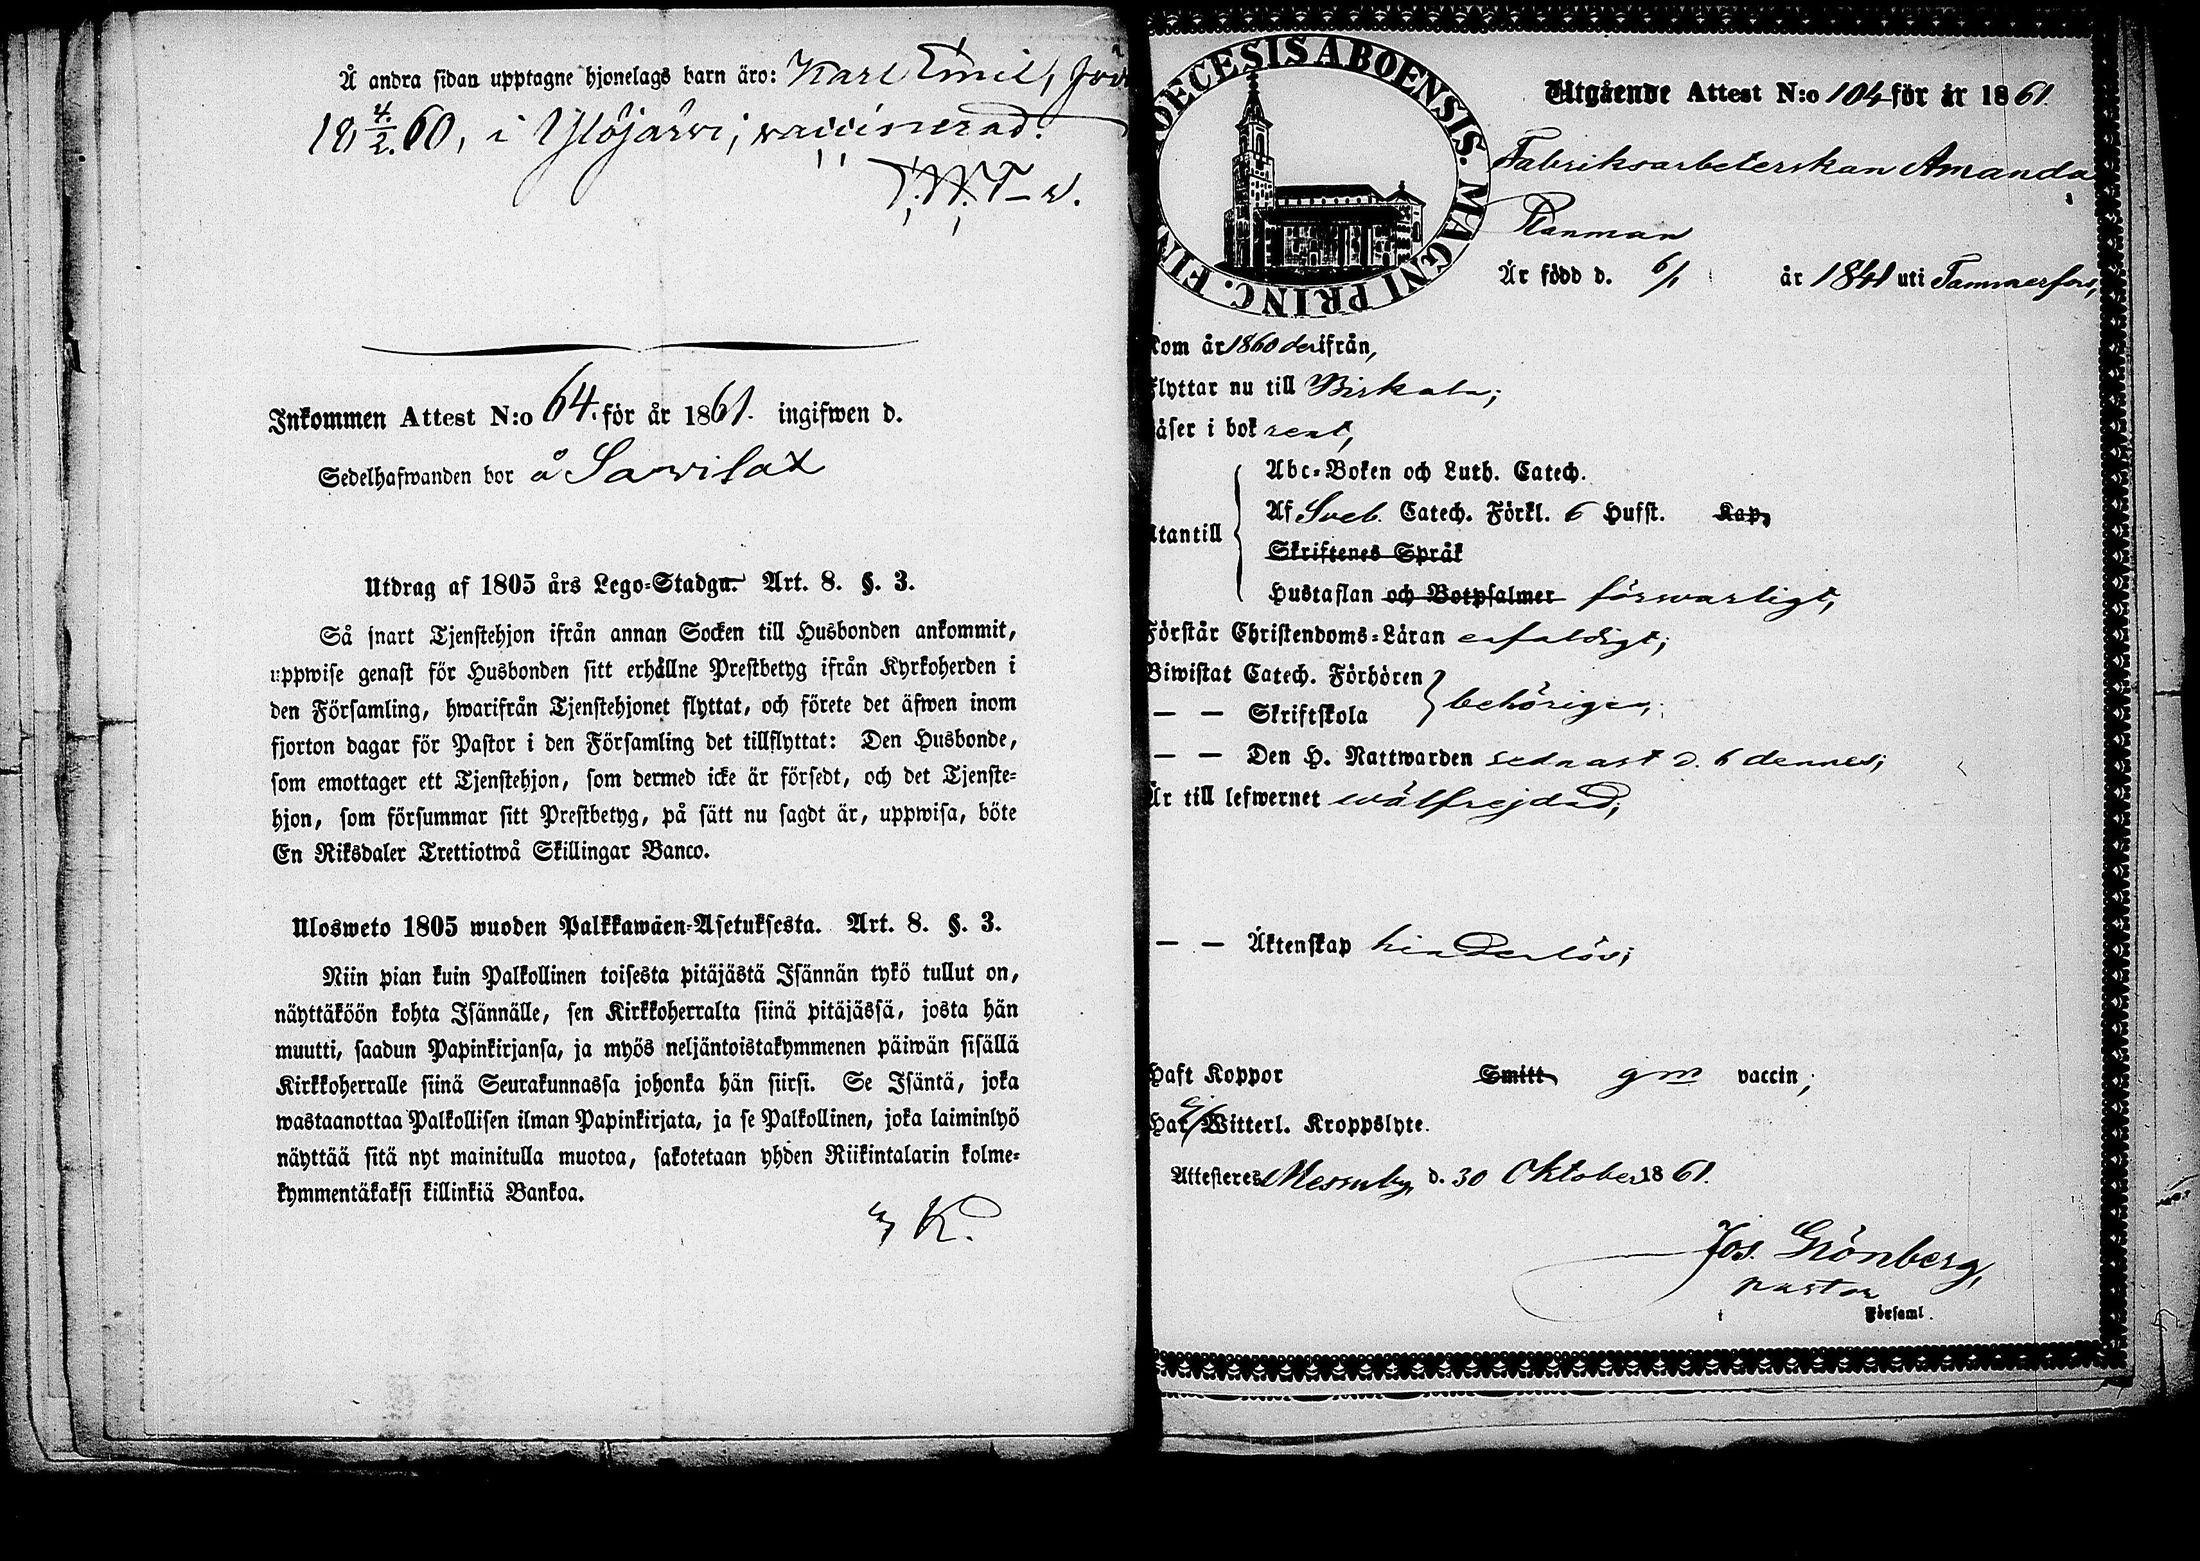 Å andra sidan upptagne hjonelags barn äro: Karl Emil, född
18 4/2 60, i Ylöjärvi; vaccinerad.
Inkommen Attest N:o 64. för år 1861. ingifwen d.
Sedelhafwanden bor å Sawilax
Utdrag af 1805 års Lego-Stadga. Art. 8. §. 3.
Så snart Tjenstehjon ifrån annan Socken till Husbonden ankommit,
uppwise genast för Husbonden sitt erhållne Prestbetyg ifrån Kyrkoherden i
den Församling, hwarifrån Tjenstehjonet flyttat, och förete det äfwen inom
fjorton dagar för Pastor i den Församling det tillflyttat: Den Husbonde,
som emottager ett Tjenstehjon, som dermed icke är försedt, och det Tjenste-
hjon, som försummar sitt Prestbetyg, på sätt nu sagdt är, uppwisa, böte
En Riksdaler Trettiotwå Skillingar Banco.
Ulosweto 1805 wuoden Palkkawäen-Asetuksesta. Art. 8. §. 3.
Niin pian kuin Palkollinen toisesta pitäjästä Isännän tykö tullut on,
näyttäköön kohta Isännälle, sen Kirkkoherralta siinä pitäjässä, josta hän
muutti, saadun Papinkirjansa, ja myös neljäntoistakymmenen päiwän sisällä
Kirkkoherralle siinä Seurakunnassa johonka hän siirsi. Se Isäntä, joka
wastaanottaa Palkollisen ilman Papinkirjata, ja se Palkollinen, joka laiminlyö
näyttää sitä nyt mainitulla muotoa, sakotetaan yhden Riikintalarin kolme-
kymmentäkaksi killinkiä Bankoa.
K.
OECESIS ABOENSIS. MAGNI PRINC. FIN
Utgående Attest N:o 104 för år 1861.
Fabriksarbeterskan Amanda
Planman
Är född d. 6/1 år 1841 uti Tammerfors,
Kom år 1860 derifrån,
Flyttar nu till Birkala;
Läser i bok rent,
Utantill
Abc-Boken och Luth. Catech.
Af Sveb. Catech. Förkl. 6 Hufst. Kap.
Skriftenes Språk
Hustaflan och Botpsalmer förswarligt,
Förstår Christendoms-Läran enfaldigt;
Biwistat Catech. Förhören
— — Skriftskola behörigen;
— — Den H. Nattwarden sednast d. 6 dennes;
Är till lefwernet wälfrejdad;
— — Äktenskap hinderlös;
Haft Koppor Smitt gm vaccin;
Har ej Witterl. Kroppslyte.
Attesteres Messuby d. 30 Oktober 1861.
Jos. Grönberg,
pastor
i Församl.